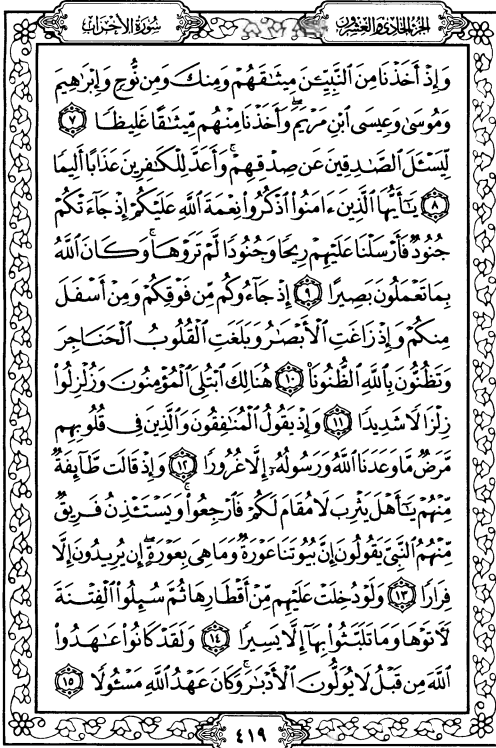 الجزء الحادي والعشرون
سورة الأحزاب
وَإِذْ أَخَذْنَا مِنَ ٱلنَّبِيِّـۧنَ مِيثَٰقَهُمْ وَمِنكَ وَمِن نُّوحٍ وَإِبْرَٰهِيمَ
وَمُوسَىٰ وَعِيسَى ٱبْنِ مَرْيَمَ ۖ وَأَخَذْنَا مِنْهُم مِّيثَٰقًا غَلِيظًا ٧
لِّيَسْـَٔلَ ٱلصَّٰدِقِينَ عَن صِدْقِهِمْ ۚ وَأَعَدَّ لِلْكَٰفِرِينَ عَذَابًا أَلِيمًا
٨ يَٰٓأَيُّهَا ٱلَّذِينَ ءَامَنُوا۟ ٱذْكُرُوا۟ نِعْمَةَ ٱللَّهِ عَلَيْكُمْ إِذْ جَآءَتْكُمْ
جُنُودٌ فَأَرْسَلْنَا عَلَيْهِمْ رِيحًا وَجُنُودًا لَّمْ تَرَوْهَا ۚ وَكَانَ ٱللَّهُ
بِمَا تَعْمَلُونَ بَصِيرًا ٩ إِذْ جَآءُوكُم مِّن فَوْقِكُمْ وَمِنْ أَسْفَلَ
مِنكُمْ وَإِذْ زَاغَتِ ٱلْأَبْصَٰرُ وَبَلَغَتِ ٱلْقُلُوبُ ٱلْحَنَاجِرَ
وَتَظُنُّونَ بِٱللَّهِ ٱلظُّنُونَا۠ ١٠ هُنَالِكَ ٱبْتُلِيَ ٱلْمُؤْمِنُونَ وَزُلْزِلُوا۟
زِلْزَالًا شَدِيدًا ١١ وَإِذْ يَقُولُ ٱلْمُنَٰفِقُونَ وَٱلَّذِينَ فِى قُلُوبِهِم
مَّرَضٌ مَّا وَعَدَنَا ٱللَّهُ وَرَسُولُهُۥٓ إِلَّا غُرُورًا ١٢ وَإِذْ قَالَت طَّآئِفَةٌ
مِّنْهُمْ يَٰٓأَهْلَ يَثْرِبَ لَا مُقَامَ لَكُمْ فَٱرْجِعُوا۟ ۚ وَيَسْتَـْٔذِنُ فَرِيقٌ
مِّنْهُمُ ٱلنَّبِىَّ يَقُولُونَ إِنَّ بُيُوتَنَا عَوْرَةٌ وَمَا هِىَ بِعَوْرَةٍ ۖ إِن يُرِيدُونَ إِلَّا
فِرَارًا ١٣ وَلَوْ دُخِلَتْ عَلَيْهِم مِّنْ أَقْطَارِهَا ثُمَّ سُئِلُوا۟ ٱلْفِتْنَةَ
لَـَٔاتَوْهَا وَمَا تَلَبَّثُوا۟ بِهَآ إِلَّا يَسِيرًا ١٤ وَلَقَدْ كَانُوا۟ عَٰهَدُوا۟
ٱللَّهَ مِن قَبْلُ لَا يُوَلُّونَ ٱلْأَدْبَٰرَ ۚ وَكَانَ عَهْدُ ٱللَّهِ مَسْـُٔولًا ١٥
٤١٩